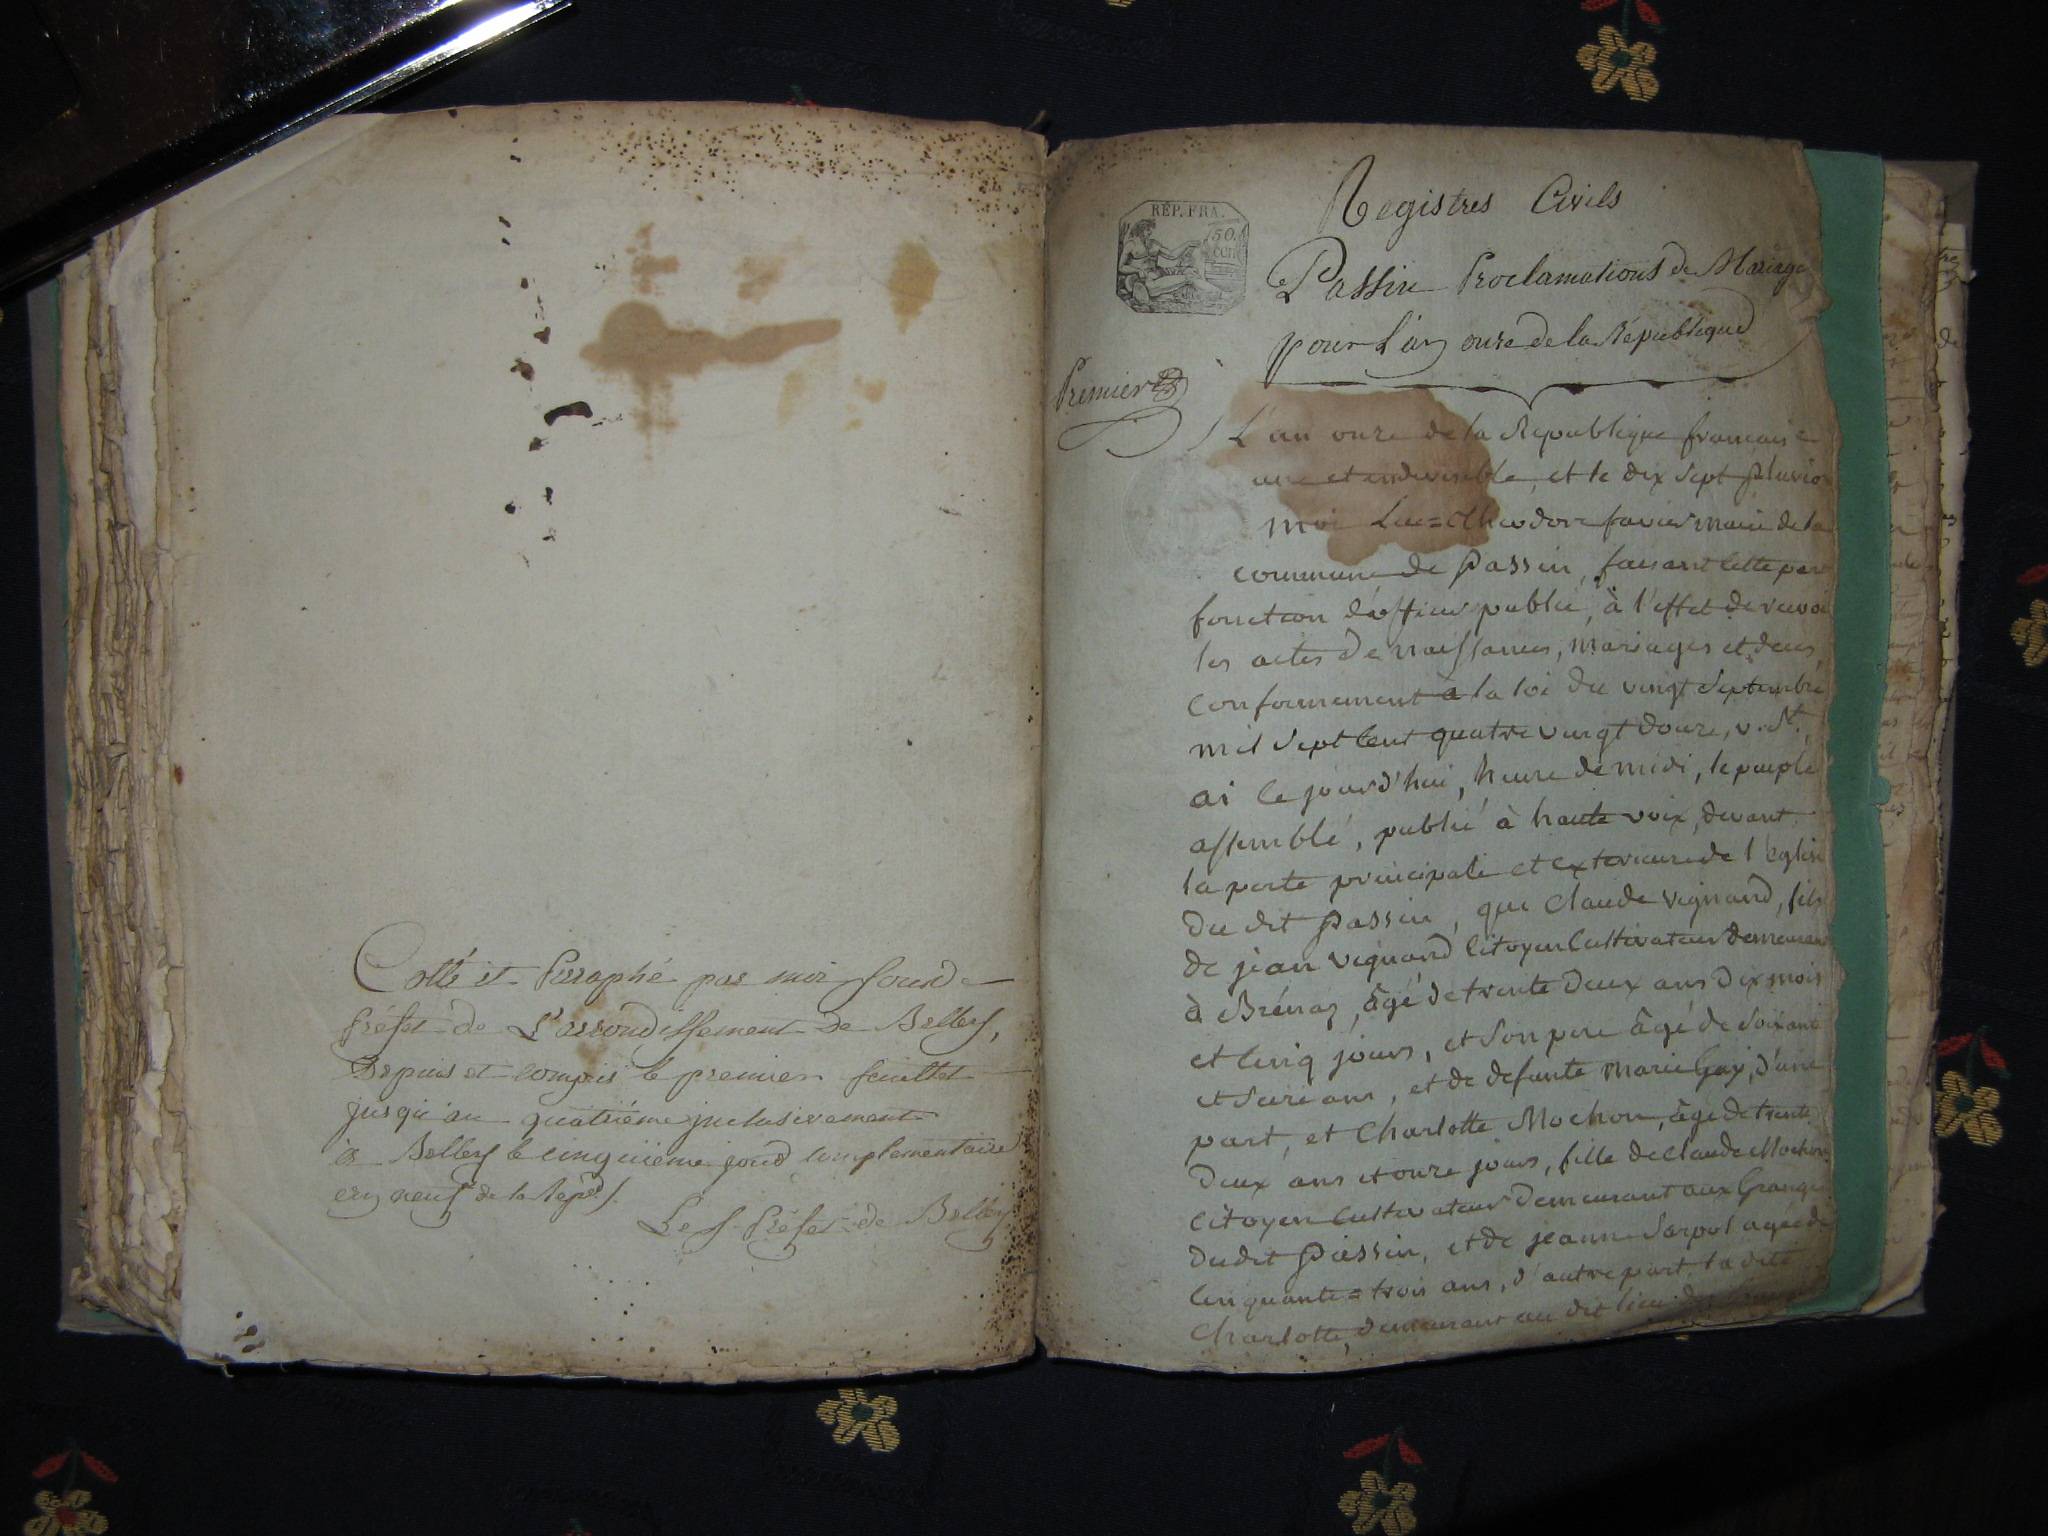 Cotté et Paraphé par moi sous
préfet de L'arrondissement de Belley,
Depuis et compris le premier feuillet
jusqu'au quatriéme inclusivement
à Belley le cinquiéme jour complementaire
an neuf de la Rep.
Le S. Préfet de Belley
REP. FRA.
50.
cen
Registres Civils
Passin Proclamations de Mariage
pour L'an onze de la République
Premier
L'an onze de la Republique francaise
une et indivisible, et le dix sept pluvio
moi Luc=Theodore favier maire de la
commune de Passin, faisant cette par
fonction d'officier public, à l'effet de recevoi
les actes de naissances, mariages et deces,
conformement à la loi du vingt Septembre
mil Sept Cent quatre vingt douze, v. St.,
ai ce jourd'hui, heure de midi, le peuple
assemblé, publié à haute voix, devant
la porte principale et exterieure de l'eglise
du dit Passin, que Claude Vignand, fils
de jean vignand Citoyen Cultivateur demeurant
à Brénaz, âgé de trente deux ans dix mois
et Cinq jours, et Son pere âgé de Soixante
et Seize ans, et de defunte marie Gay, d'une
part, et Charlotte Mochon, âgé de trente
deux ans et onze jours, fille de Claude Mochon
Citoyen Cultivateur demeurant aux Granges
dudit Passin, et de jeanne Sarpol agée de
Cinquante=trois ans, d'autre part. la dite
Charlotte, demeurant au dit lieu des